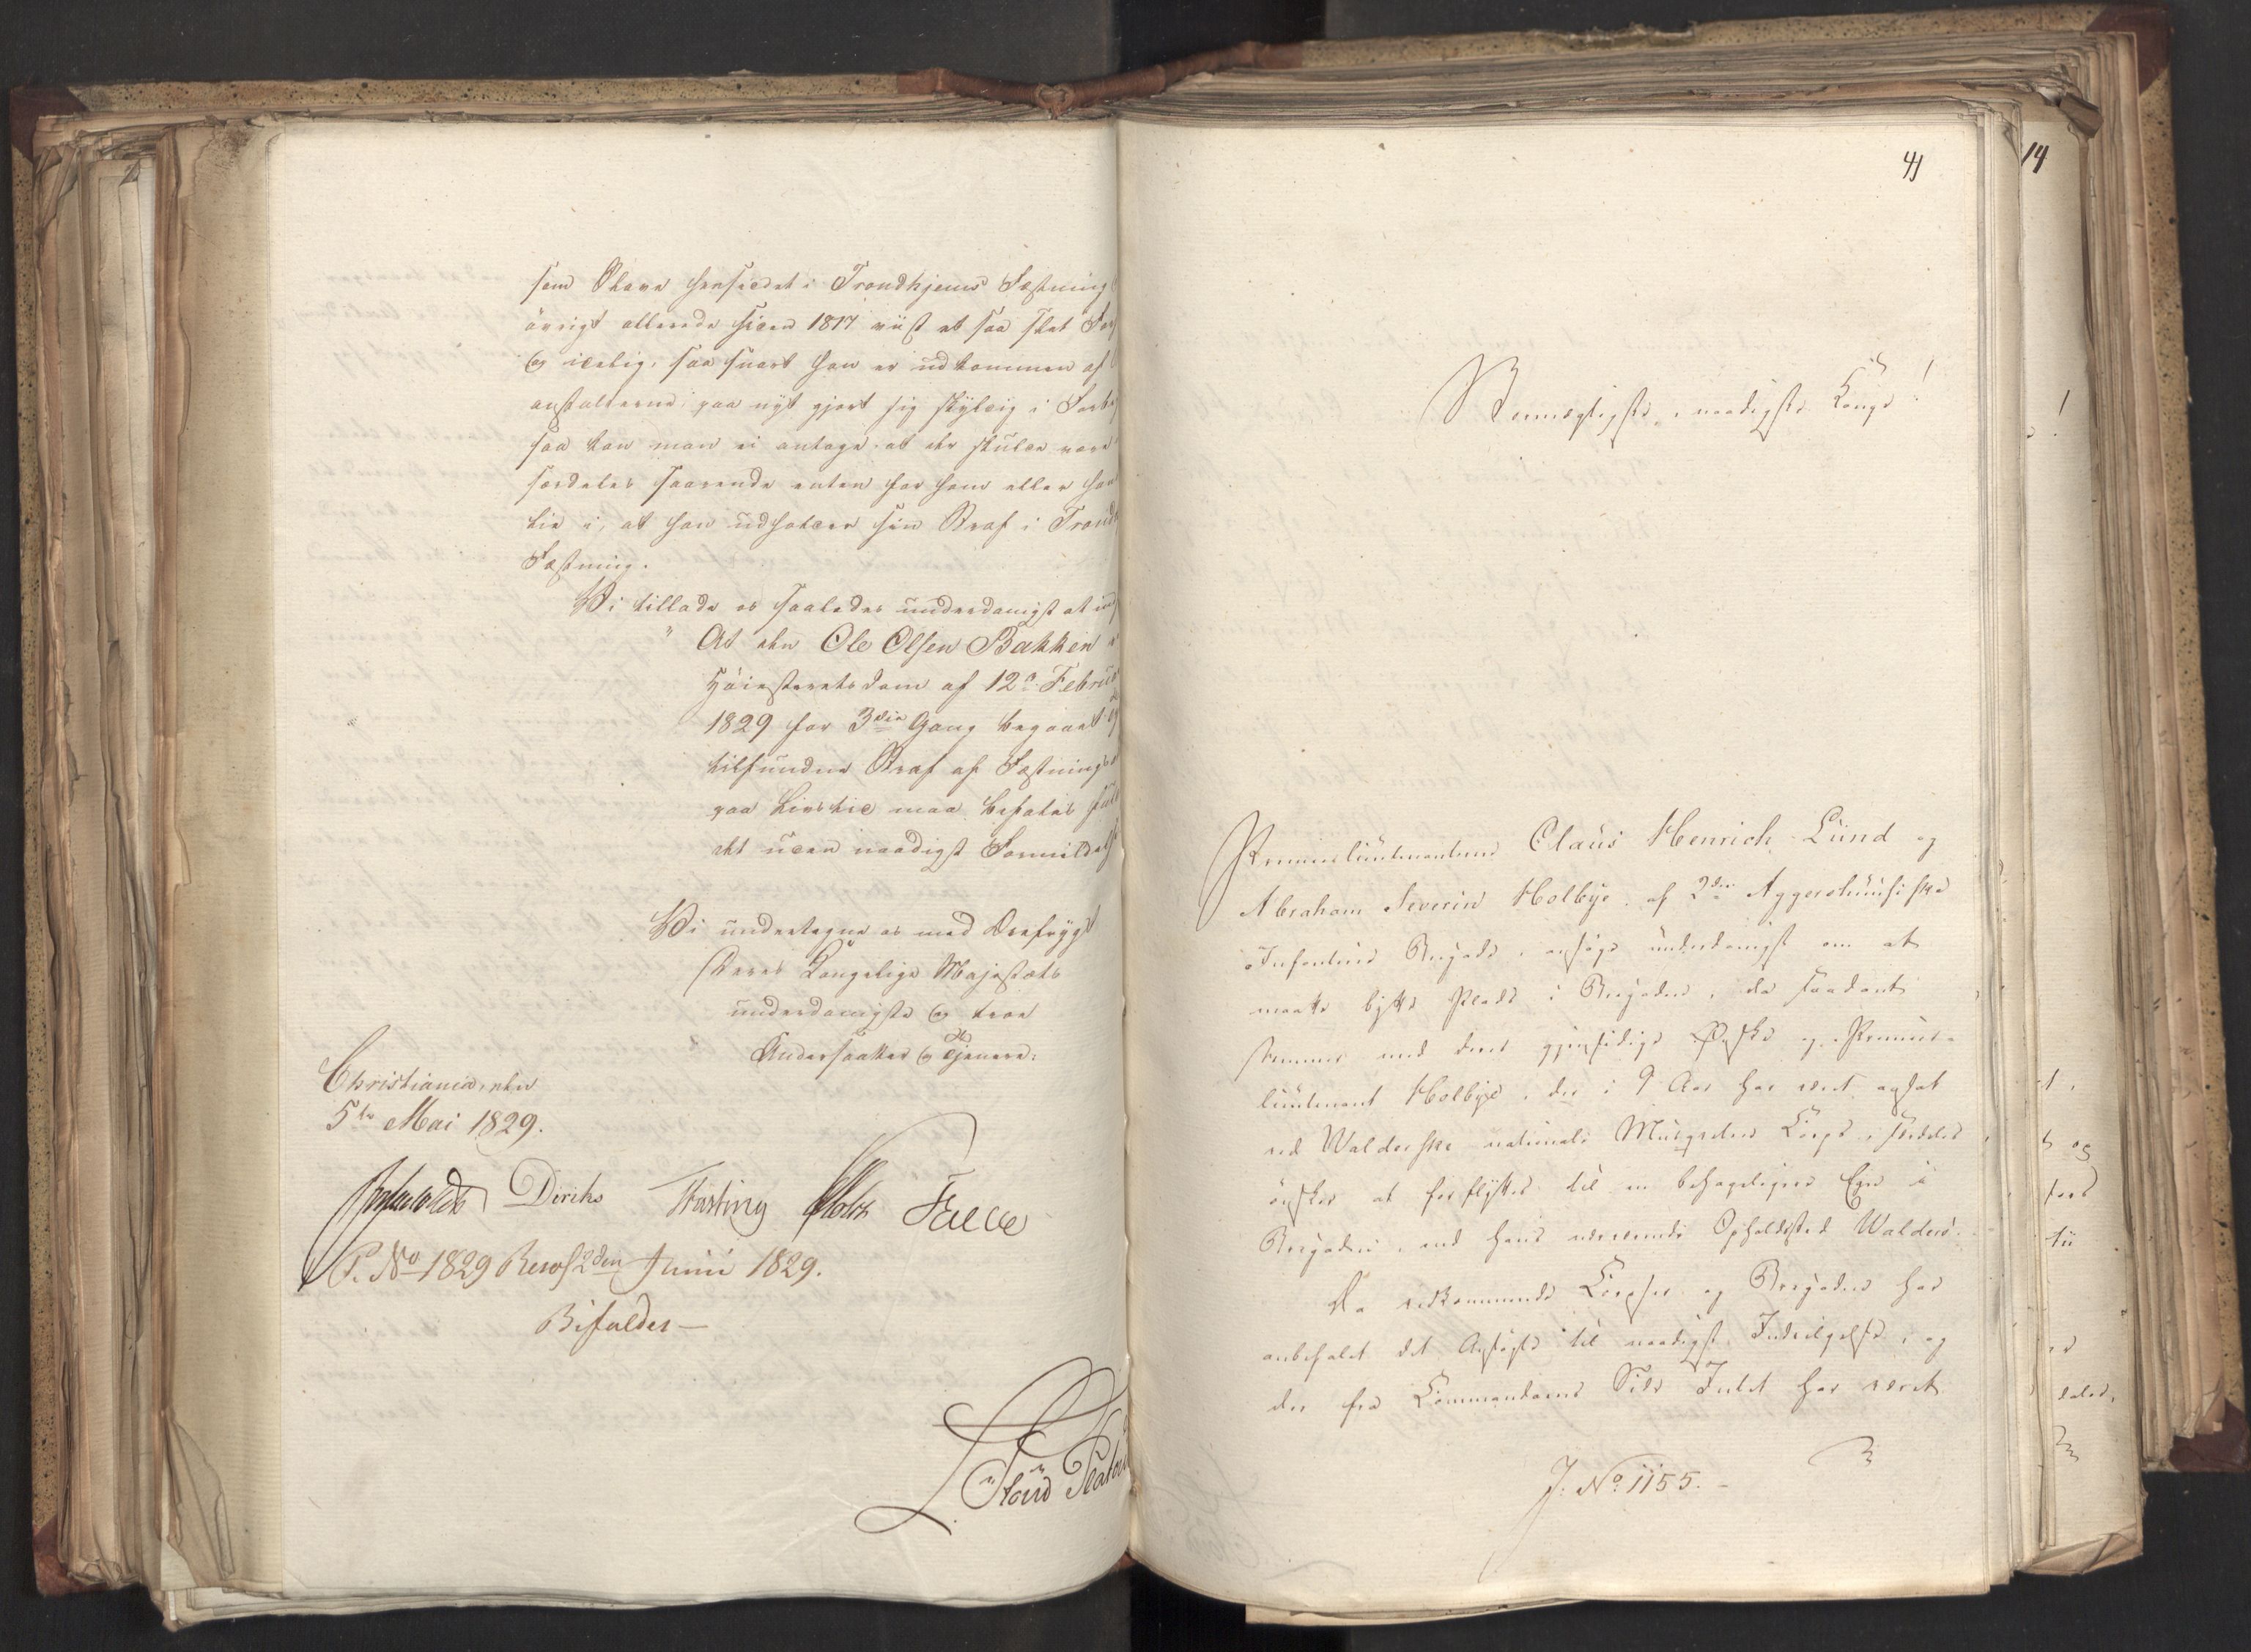 som Slave hensiddet i Trondhjems Fæstning
övrigt allerede siden 1817 viist et saa slet For
og idelig, saa snart han er udkommen af
anstalterne, paa nyt gjort sig skyldig i Forb
saa kan man ei antage at der skulde være
særdeles saarende enten for ham eller ham
lie i, at han udholder sin Straf i Trond
Fæstning.
Vi tillade os saaledes underdanigst at ind
" At den Ole Olsen Bakken v
Høiesteretsdom af 12te Februar
1829 for 3die Gang begaaet
tilfundne Straf af Fæstnings
paa Livstid maa befales fuld
det uden naadigst Formildelse
Vi undertegne os med Ærefrygt
Deres Kongelige Majestæts
underdanigste og troe
Undersaatter og Tjenere:
Christiania, den
5te Mai 1829.
Diriks Fasting Holst Falbe
P. No 1829 Resol 2den Junii 1829.
Bifaldes —
41
14
Stormægtigste, naadigste Konge!
Premierlieutenanterne Claus Henrich Lund og
Abraham Severin Holbye af 2den Aggershuusiske
Infanterie Brigade, ansøge underdanigst om at
maatte bytte Plads i Brigaden, da saadant
stemmer med deres gjensidige Ønske og Premier-
lieutenant Holbye, der i 9 Aar har været ansat
ved Walderske nationale Musqueteer Corps, saaledes
ønsker at forflyttes til en behageligere Egn i
Brigaden, end hans nærværende Opholdssted Walders.
Da vedkommende Corpser og Brigaden har
anbefalet det Ansøgte til naadigst Indvilgelse, og
der fra Commandoens Side Intet har været
J. No 1155. -